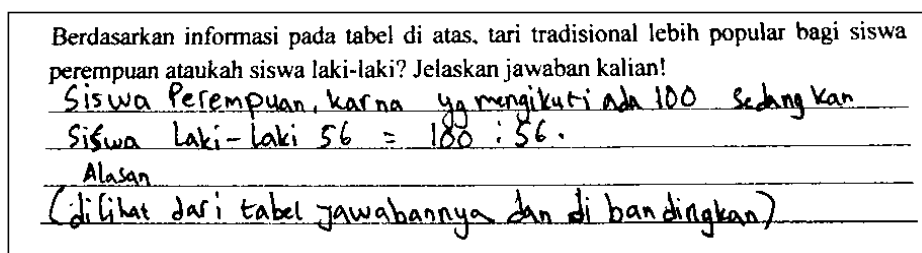 Berdasarkan informasi pada tabel di atas, tari tradisional lebih popular bagi siswa
perempuan ataukah siswa laki-laki? Jelaskan jawaban kalian!
Siswa Perempuan, karna yg mengikuti Ada 100 Sedang kan
Siswa Laki-Laki 56 = 100 : 56.
Alasan
(diLihat dari tabel jawabannya dan di bandingkan)